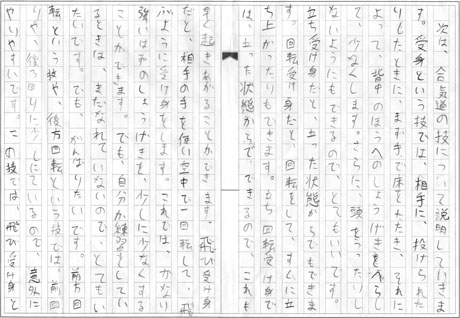 次は、合気道の技について説明していきま
す。受身という技では、相手に、投げられた
りしたときに、まず手で床をたたき、それに
よって、背中のほうへのしょうげきをへらし
て、少なくします。さらに、頭をうったりし
ないようにもできるので、とてもいいです。
立ち受け身だと、立った状態からでもできま
す。回転受け身だと、回転をして、すぐに立
ち上がったりもできます。立ち回転受け身で
は、立った状態からで、できるので、これも
早く起き上がることができます。飛び受け身
だと、相手の手を使い空中で一回転して、飛
ぶように受け身をします。これでは、かなり
強いはずのしょうげきを、少しに少なくする
ことができます。でも、自分が練習をしてい
るときは、まだなれていないので、とてもい
たいです。でも、がんばりたいです。前方回
転という技や、後方回転という技では、前回
りや、後ろ回りに少しにているので、意外に
やりやすいです。この技では、飛び受け身と